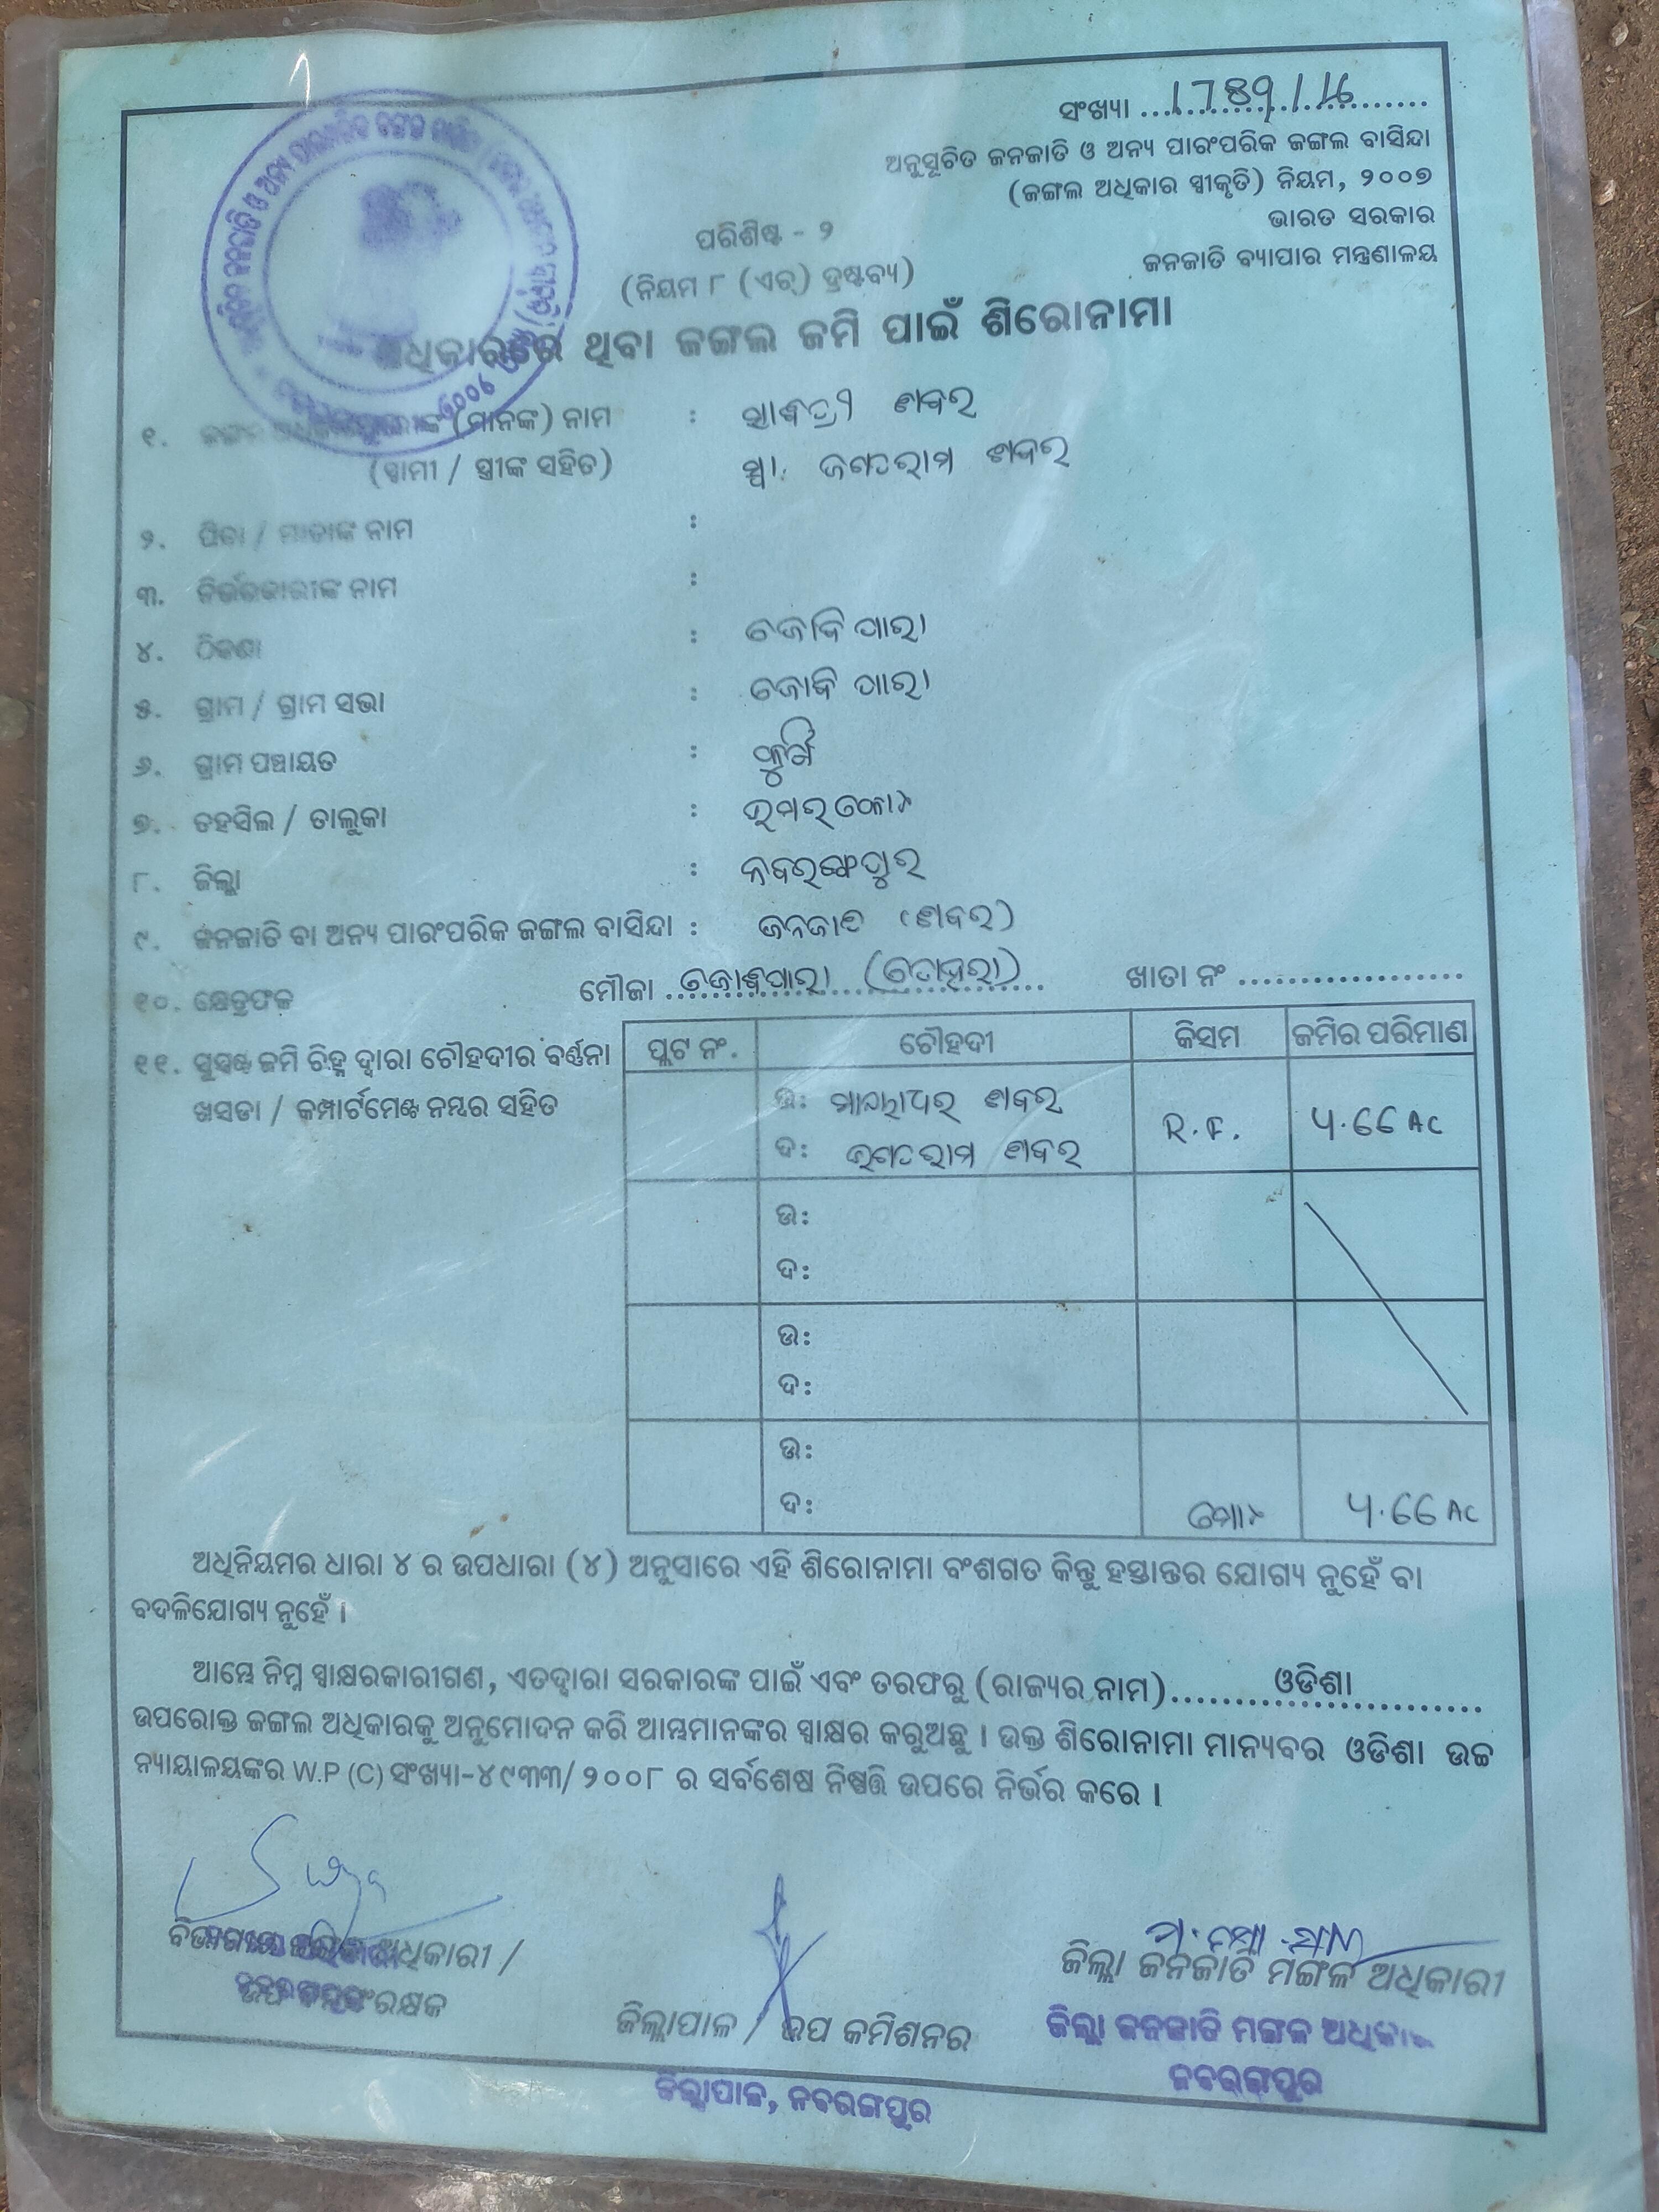 ସଂଖ୍ୟା
ଅନୁସୂଚିତ ଜନଜାତି ଓ ଅନ୍ୟ ପାରଂପରିକ ଜଙ୍ଗଲ ବାସିନ୍ଦା
(ଜଙ୍ଗଲ ଅଧିକାର ସ୍ୱୀକୃତି) ନିୟମ, ୨୦୦୭
ଭାରତ ସରକାର
ଜନଜାତି ବ୍ୟାପାର ମନ୍ତ୍ରଣାଳୟ
ପରିଶିଷ୍ଟ - ୨
(ନିୟମ ୮ (ଏଚ୍) ଦ୍ରଷ୍ଟବ୍ୟ)
ଅଧିକାରରେ ଥିବା ଜଙ୍ଗଲ ଜମି ପାଇଁ ଶିରୋନାମା
୧. (ମାନଙ୍କ) ନାମ : ଶବର
(ସ୍ୱାମୀ / ସ୍ତ୍ରୀଙ୍କ ସହିତ) ସ୍ୱା. ଜଗତରାମ ଶବର
୨. ପିତା / ମାତାଙ୍କ ନାମ :
୩. ନିର୍ଭରକାରୀଙ୍କ ନାମ :
୪. ଠିକଣା : ଜୋକିପାରା
୫. ଗ୍ରାମ / ଗ୍ରାମ ସଭା : ଜୋକିପାରା
୬. ଗ୍ରାମ ପଞ୍ଚାୟତ :
୭. ତହସିଲ / ତାଲୁକା : ଉମରକୋଟ
୮. ଜିଲ୍ଲା : ନବରଙ୍ଗପୁର
୯. ଜନଜାତି ବା ଅନ୍ୟ ପାରଂପରିକ ଜଙ୍ଗଲ ବାସିନ୍ଦା : ଜନଜାତି (ଶବର)
୧୦. କ୍ଷେତ୍ରଫଳ ମୌଜା ଜୋକିପାରା ଖାତା ନଂ
୧୧. ସୁସ୍ପଷ୍ଟ ଜମି ଚିହ୍ନ ଦ୍ୱାରା ଚୌହଦୀର ବର୍ଣ୍ଣନା
ଖସଡା / କମ୍ପାର୍ଟମେଣ୍ଟ ନମ୍ବର ସହିତ
ପ୍ଲଟ ନଂ. ଚୌହଦୀ କିସମ ଜମିର ପରିମାଣ
ଉ: ଶବର R.F. ୪.୧୧ AC
ଦ: ଜଗତରାମ ଶବର
ଉ:
ଦ:
ଉ:
ଦ:
ଉ:
ଦ: ମୋଟ ୪.୧୧ AC
ଅଧିନିୟମର ଧାରା ୪ ର ଉପଧାରା (୪) ଅନୁସାରେ ଏହି ଶିରୋନାମା ବଂଶଗତ କିନ୍ତୁ ହସ୍ତାନ୍ତର ଯୋଗ୍ୟ ନୁହେଁ ବା
ବଦଳିଯୋଗ୍ୟ ନୁହେଁ ।
ଆମ୍ଭେ ନିମ୍ନ ସ୍ୱାକ୍ଷରକାରୀଗଣ, ଏତଦ୍ଦ୍ୱାରା ସରକାରଙ୍କ ପାଇଁ ଏବଂ ତରଫରୁ (ରାଜ୍ୟର ନାମ) ଓଡିଶା
ଉପରୋକ୍ତ ଜଙ୍ଗଲ ଅଧିକାରକୁ ଅନୁମୋଦନ କରି ଆମ୍ଭମାନଙ୍କର ସ୍ୱାକ୍ଷର କରୁଅଛୁ । ଉକ୍ତ ଶିରୋନାମା ମାନ୍ୟବର ଓଡିଶା ଉଚ୍ଚ
ନ୍ୟାୟାଳୟଙ୍କର W.P (C) ସଂଖ୍ୟା-୪୯୩୩/୨୦୦୮ ର ସର୍ବଶେଷ ନିଷ୍ପତ୍ତି ଉପରେ ନିର୍ଭର କରେ ।
ଅଧିକାରୀ /
ଜିଲ୍ଲାପାଳ / ଉପ କମିଶନର
ଜିଲ୍ଲା ଜନଜାତି ମଙ୍ଗଳ ଅଧିକାରୀ
ଜିଲ୍ଲା ଜନଜାତି ମଙ୍ଗଳ
ନବରଙ୍ଗପୁର
ଜିଲ୍ଲାପାଳ, ନବରଙ୍ଗପୁର